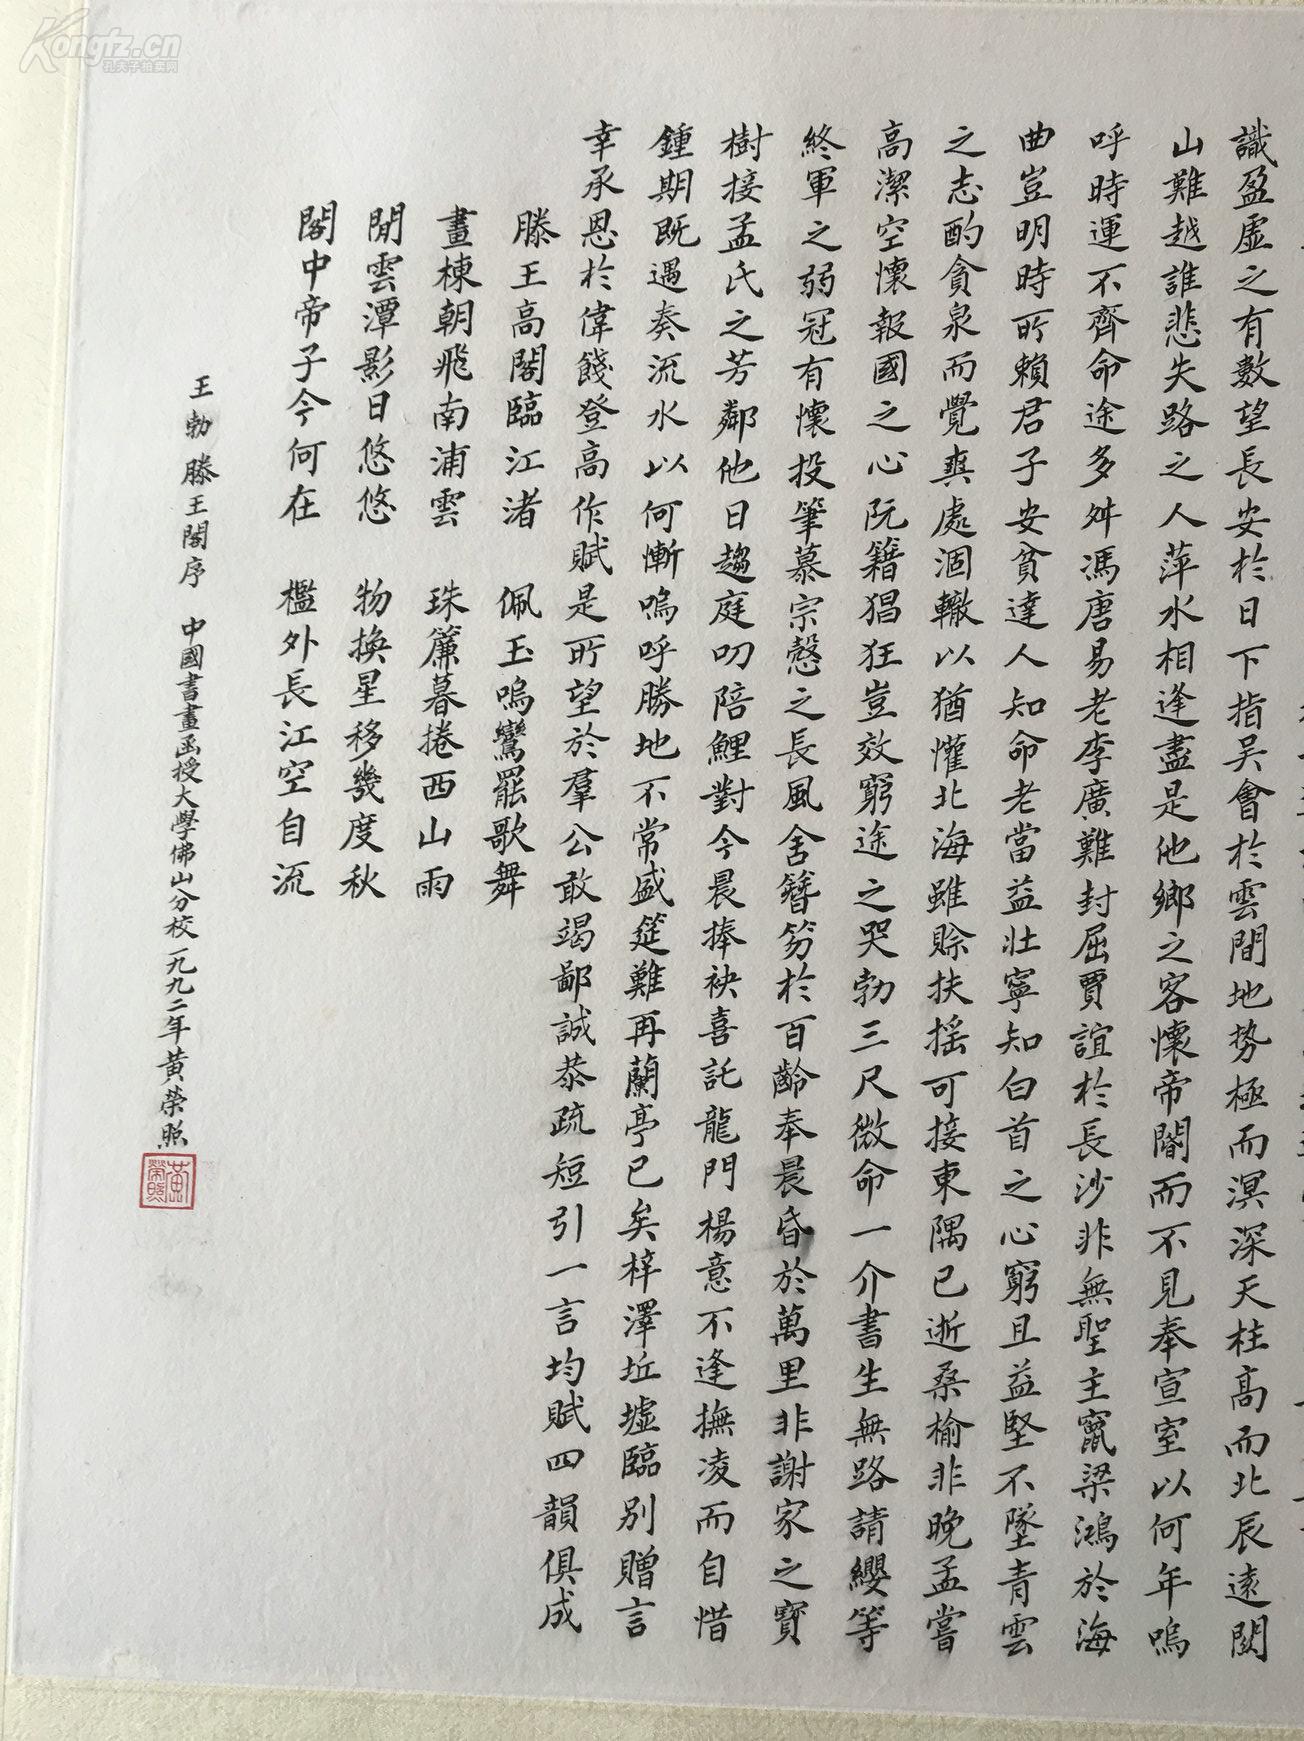 識盈虛之有數望長安於日下指吴會於雲間地势極而溟深天柱高而北辰遠関
山難越誰悲失路之人萍水相逢盡是他鄉之客懷帝閽而不見奉宣室以何年嗚
呼時運不齊命途多舛馮唐易老李廣難封屈賈誼於長沙非無聖主竄梁鴻於海
曲豈明時所賴君子安貧達人知命老當益壮寧知白首之心窮且益堅不墜青雲
之志酌貪泉而覺爽處涸轍以猶懽北海雖賒扶摇可接東隅已逝桑榆非晚孟嘗
高潔空懷報國之心阮籍猖狂豈效窮途之哭勃三尺微命一介書生無路請纓等
終軍之弱冠有懷投筆慕宗慤之長風舍簪笏於百齡奉晨昏於萬里非謝家之寶
樹接孟氏之芳鄰他日趨庭叨陪鯉對今晨捧袂喜託龍門楊意不逢撫凌而自惜
鍾期既遇奏流水以何慚嗚呼勝地不常盛筵難再蘭亭已矣梓澤坵墟臨别贈言
幸承恩於偉餞登高作賦是所望於羣公敢竭鄙誠恭疏短引一言均賦四韻俱成
滕王高閣臨江渚 佩玉嗚鸞罷歌舞
畫棟朝飛南浦雲 珠簾暮捲西山雨
閒雲潭影日悠悠 物換星移幾度秋
閣中帝子今何在 檻外長江空自流
王勃滕王閣序 中國書畫函授大學佛山分校一九九二年黄荣照
黄榮照
Kongfz.cn
孔夫子拍卖网